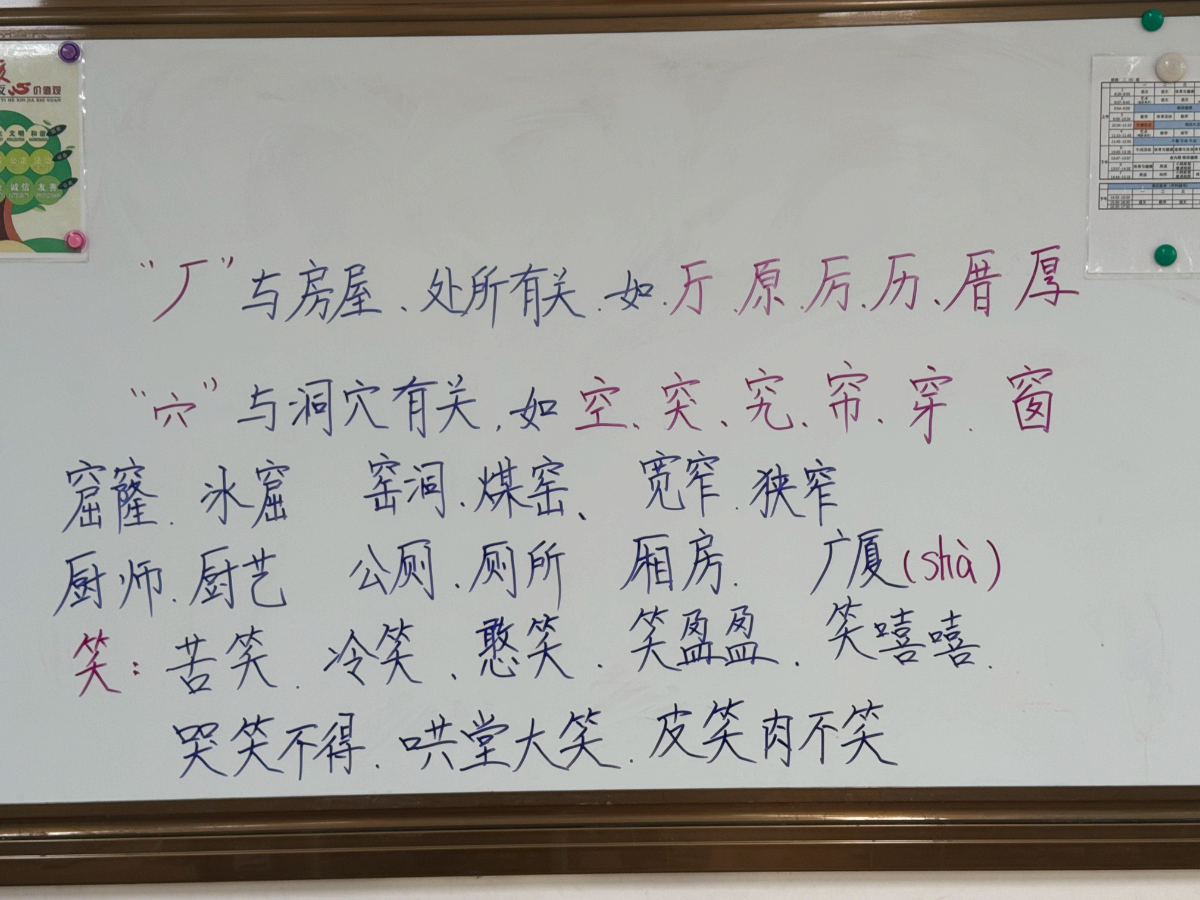 价值观
文明 和谐
诚信 友善
“厂”与房屋、处所有关.如.厅.原.厉.历、厝厚
“穴”与洞穴有关,如空、突、究、帘、穿.窗
窟窿.冰窟 窑洞.煤窑、宽窄.狭窄
厨师.厨艺 公厕.厕所 厢房. 广厦(shà)
笑:苦笑.冷笑、憨笑.笑盈盈.笑嘻嘻.
哭笑不得.哄堂大笑.皮笑肉不笑